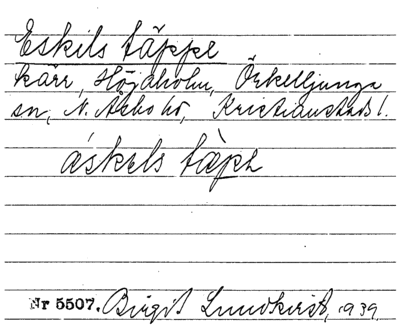 Eskils täppe
kärr, Höjdholm, Örkelljunga
sn, N. Åsbo hd, Kristianstads l.
áskels tæpe
Nr 5507. Birgit Lundkvist, 1939.